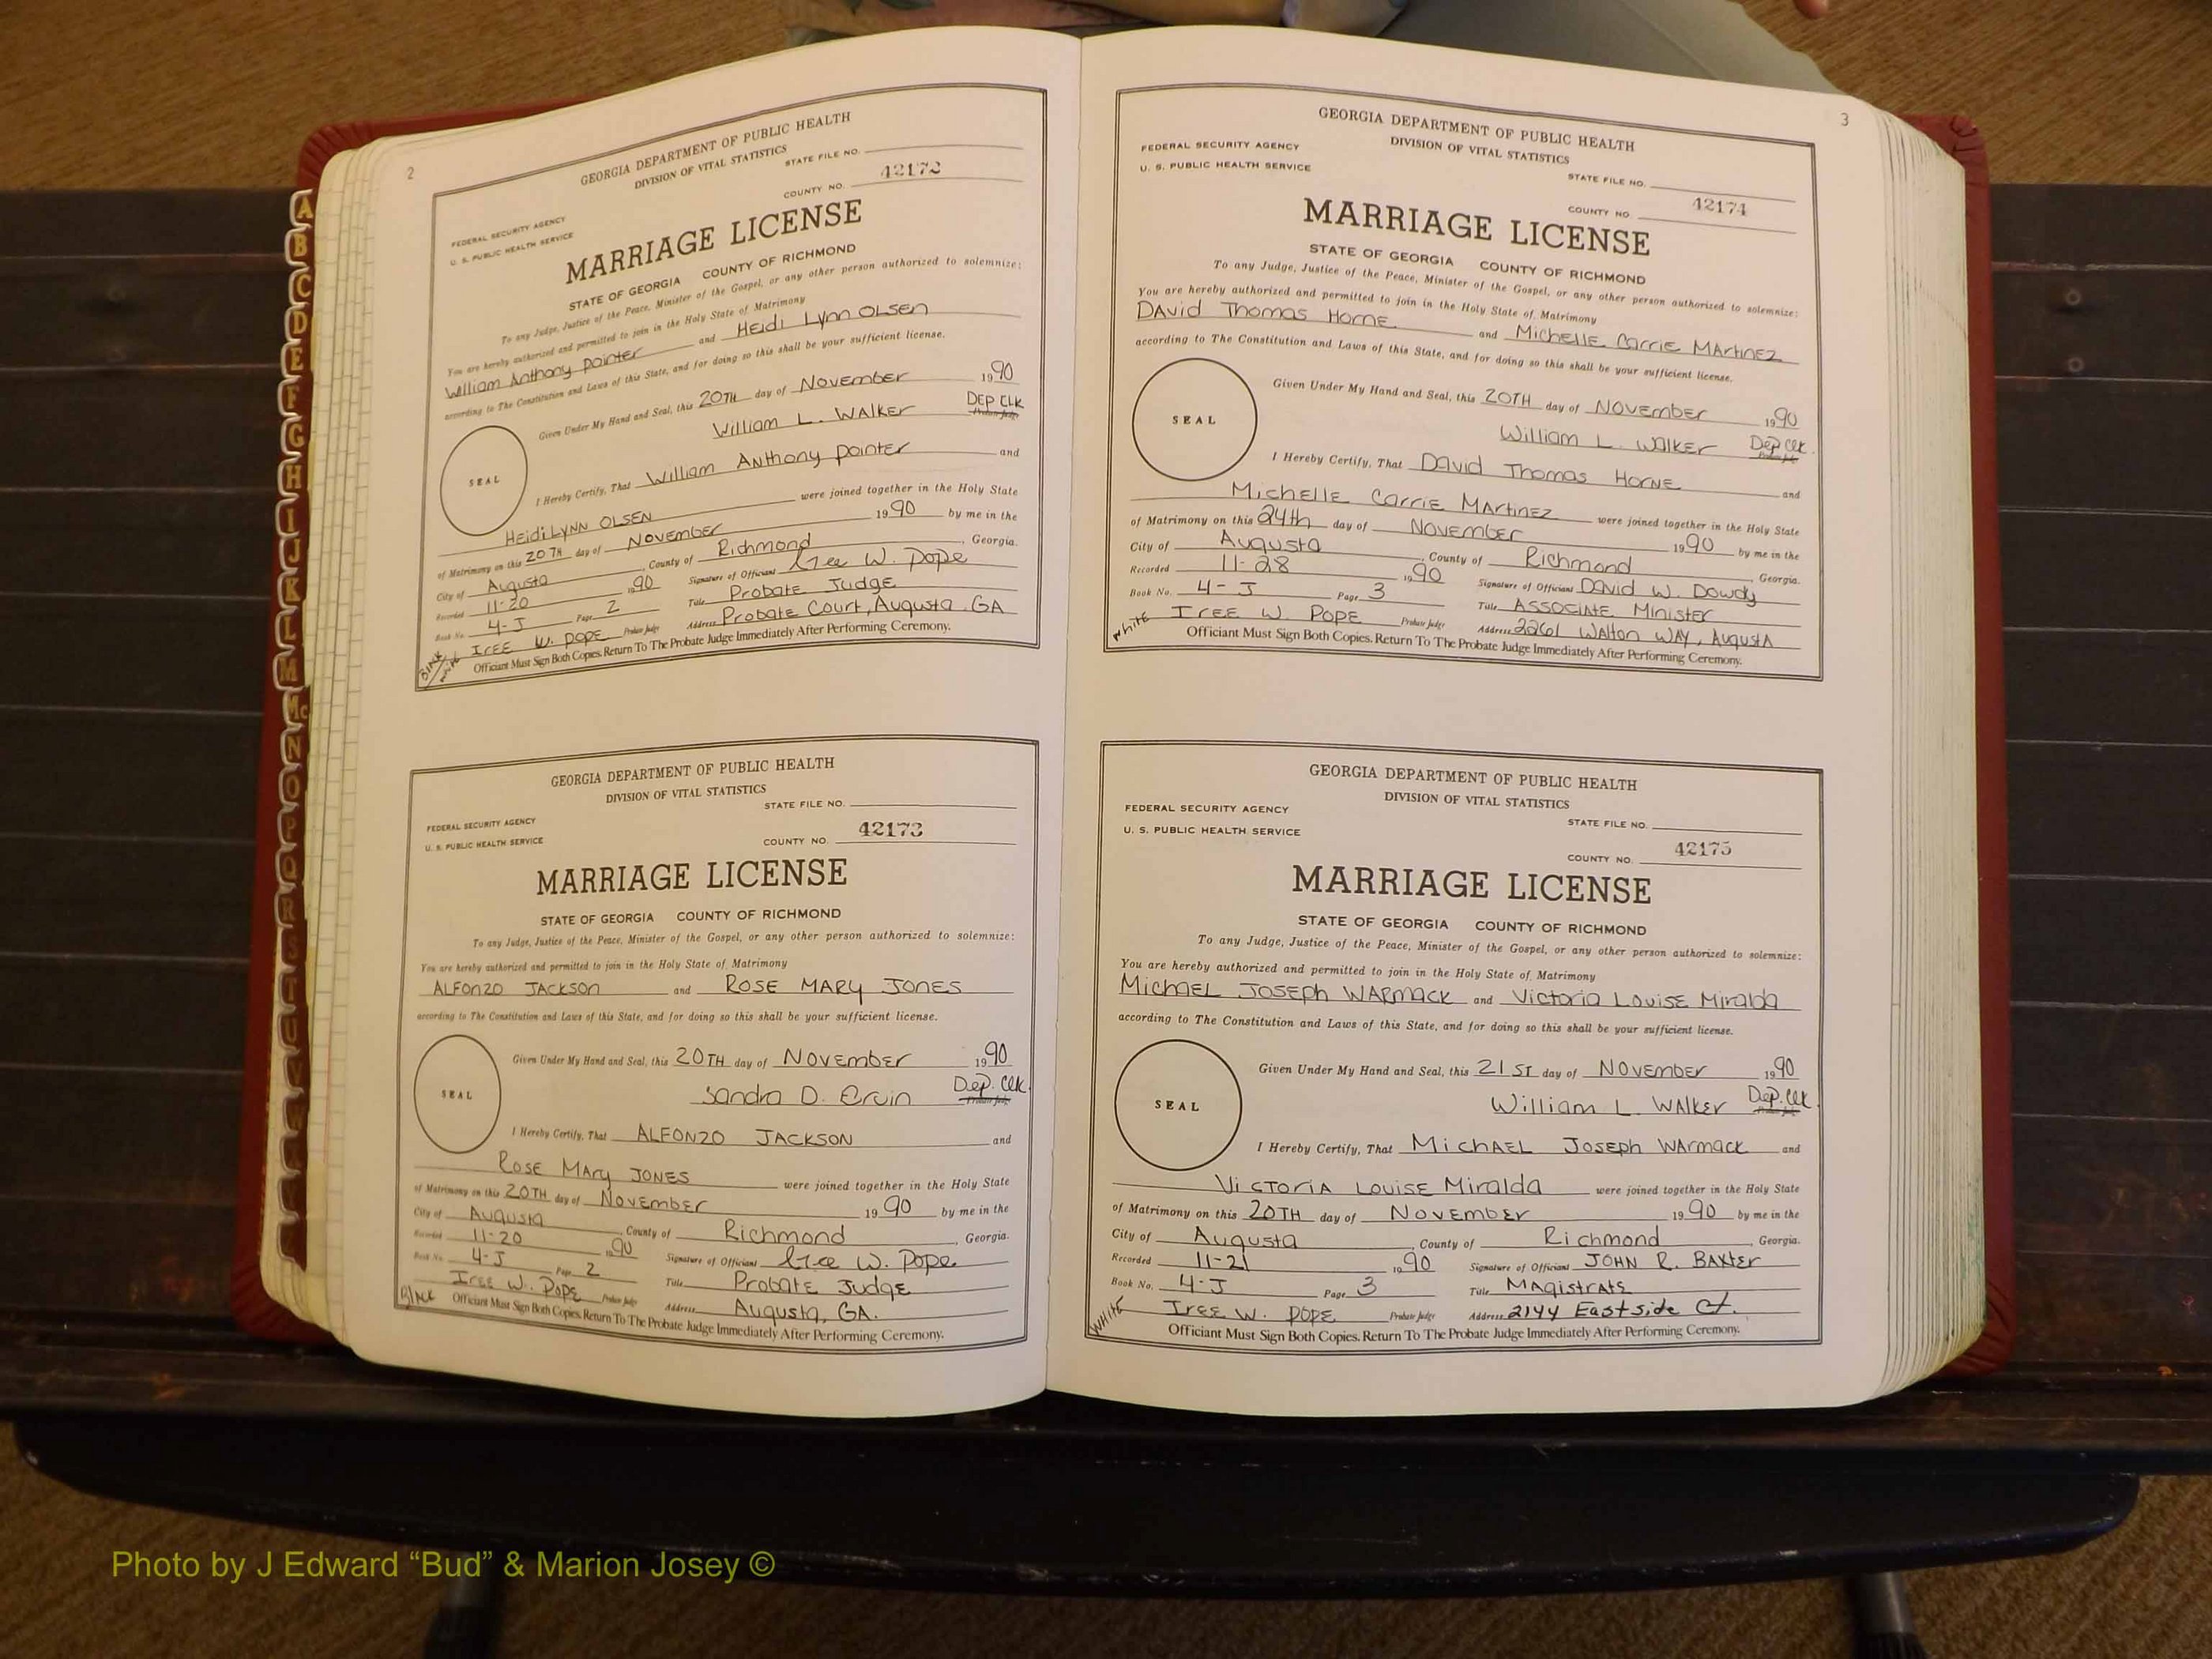 A
B
C
D
E
F
G
H
I
J
K
L
M
Mc
N
O
P
Q
R
S
T
U
V
W
2
GEORGIA DEPARTMENT OF PUBLIC HEALTH
DIVISION OF VITAL STATISTICS
STATE FILE NO.
FEDERAL SECURITY AGENCY
U. S. PUBLIC HEALTH SERVICE
COUNTY NO. 42172
MARRIAGE LICENSE
STATE OF GEORGIA COUNTY OF RICHMOND
To any Judge, Justice of the Peace, Minister of the Gospel, or any other person authorized to solemnize:
You are hereby authorized and permitted to join in the Holy State of Matrimony
William Anthony Pointer and Heidi Lynn OLSEN
according to The Constitution and Laws of this State, and for doing so this shall be your sufficient license.
Given Under My Hand and Seal, this 20TH day of November 1990
William L. WALKER DEP CLK
Probate Judge
SEAL
I Hereby Certify, That William Anthony Pointer and
Heidi LYNN OLSEN were joined together in the Holy State
of Matrimony on this 20TH day of November 1990 by me in the
City of Augusta, County of Richmond, Georgia.
Recorded 11-20 1990 Signature of Officiant Iree W. Pope
Book No. 4-J Page 2 Title Probate Judge
Iree W. Pope Probate Judge Address Probate Court, Augusta GA
Officiant Must Sign Both Copies. Return To The Probate Judge Immediately After Performing Ceremony.
GEORGIA DEPARTMENT OF PUBLIC HEALTH
DIVISION OF VITAL STATISTICS
STATE FILE NO.
FEDERAL SECURITY AGENCY
U. S. PUBLIC HEALTH SERVICE
COUNTY NO. 42173
MARRIAGE LICENSE
STATE OF GEORGIA COUNTY OF RICHMOND
To any Judge, Justice of the Peace, Minister of the Gospel, or any other person authorized to solemnize:
You are hereby authorized and permitted to join in the Holy State of Matrimony
ALFONZO JACKSON and ROSE MARY JONES
according to The Constitution and Laws of this State, and for doing so this shall be your sufficient license.
Given Under My Hand and Seal, this 20TH day of November 1990
Sandra D. Ervin Dep. Clk
Probate Judge
SEAL
I Hereby Certify, That ALFONZO JACKSON and
Rose Mary JONES were joined together in the Holy State
of Matrimony on this 20TH day of November 1990 by me in the
City of Augusta, County of Richmond, Georgia.
Recorded 11-20 1990 Signature of Officiant Iree W. Pope
Book No. 4-J Page 2 Title Probate Judge
Iree W. Pope Probate Judge Address Augusta, GA.
Officiant Must Sign Both Copies. Return To The Probate Judge Immediately After Performing Ceremony.
3
GEORGIA DEPARTMENT OF PUBLIC HEALTH
DIVISION OF VITAL STATISTICS
FEDERAL SECURITY AGENCY
U. S. PUBLIC HEALTH SERVICE
STATE FILE NO.
COUNTY NO. 42174
MARRIAGE LICENSE
STATE OF GEORGIA COUNTY OF RICHMOND
To any Judge, Justice of the Peace, Minister of the Gospel, or any other person authorized to solemnize:
You are hereby authorized and permitted to join in the Holy State of Matrimony
David Thomas Horne and Michelle Carrie Martinez
according to The Constitution and Laws of this State, and for doing so this shall be your sufficient license.
Given Under My Hand and Seal, this 20TH day of November 1990
William L. Walker Dep Clk.
Probate Judge
SEAL
I Hereby Certify, That David Thomas Horne and
Michelle Carrie Martinez were joined together in the Holy State
of Matrimony on this 24th day of November 1990 by me in the
City of Augusta, County of Richmond, Georgia.
Recorded 11-28 1990 Signature of Officiant David W. Dowdy
Book No. 4-J Page 3 Title Associate Minister
White Iree W. Pope Probate Judge Address 2261 Walton Way, Augusta
Officiant Must Sign Both Copies. Return To The Probate Judge Immediately After Performing Ceremony.
GEORGIA DEPARTMENT OF PUBLIC HEALTH
DIVISION OF VITAL STATISTICS
FEDERAL SECURITY AGENCY
U. S. PUBLIC HEALTH SERVICE
STATE FILE NO.
COUNTY NO. 42175
MARRIAGE LICENSE
STATE OF GEORGIA COUNTY OF RICHMOND
To any Judge, Justice of the Peace, Minister of the Gospel, or any other person authorized to solemnize:
You are hereby authorized and permitted to join in the Holy State of Matrimony
Michael Joseph Warmack and Victoria Louise Miralda
according to The Constitution and Laws of this State, and for doing so this shall be your sufficient license.
Given Under My Hand and Seal, this 21ST day of November 1990
William L. Walker Dep. Clk.
Probate Judge
SEAL
I Hereby Certify, That Michael Joseph Warmack and
Victoria Louise Miralda were joined together in the Holy State
of Matrimony on this 20TH day of November 1990 by me in the
City of Augusta, County of Richmond, Georgia.
Recorded 11-21 1990 Signature of Officiant JOHN R. BAXTER
Book No. 4-J Page 3 Title Magistrate
WHITE Iree W. Pope Probate Judge Address 2144 Eastside Ct.
Officiant Must Sign Both Copies. Return To The Probate Judge Immediately After Performing Ceremony.
Photo by J Edward “Bud” & Marion Josey ©